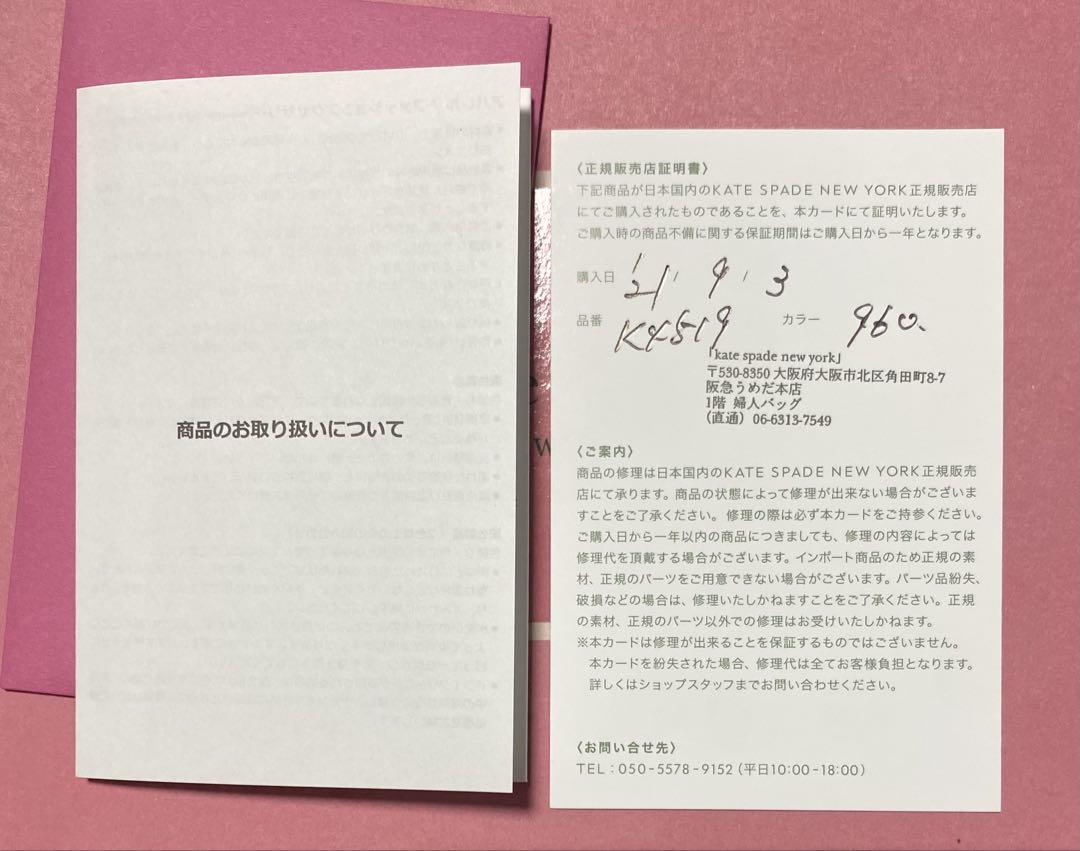 商品のお取り扱いについて
〈正規販売店証明書〉
下記商品が日本国内のKATE SPADE NEW YORK正規販売店
にてご購入されたものであることを、本カードにて証明いたします。
ご購入時の商品不備に関する保証期間はご購入日から一年となります。
購入日 21 9 3
品番 K4519 カラー 960.
「kate spade new york」
〒530-8350 大阪府大阪市北区角田町8-7
阪急うめだ本店
1階 婦人バッグ
(直通) 06-6313-7549
〈ご案内〉
商品の修理は日本国内のKATE SPADE NEW YORK正規販売
店にて承ります。商品の状態によって修理が出来ない場合がございま
すことをご了承ください。修理の際は必ず本カードをご持参ください。
ご購入日から一年以内の商品につきましても、修理の内容によっては
修理代を頂戴する場合がございます。インポート商品のため正規の素
材、正規のパーツをご用意できない場合がございます。パーツ品紛失、
破損などの場合は、修理いたしかねますことをご了承ください。正規
の素材、正規のパーツ以外での修理はお受けいたしかねます。
※本カードは修理が出来ることを保証するものではございません。
本カードを紛失された場合、修理代は全てお客様負担となります。
詳しくはショップスタッフまでお問い合わせください。
〈お問い合せ先〉
TEL：050-5578-9152（平日10:00-18:00）